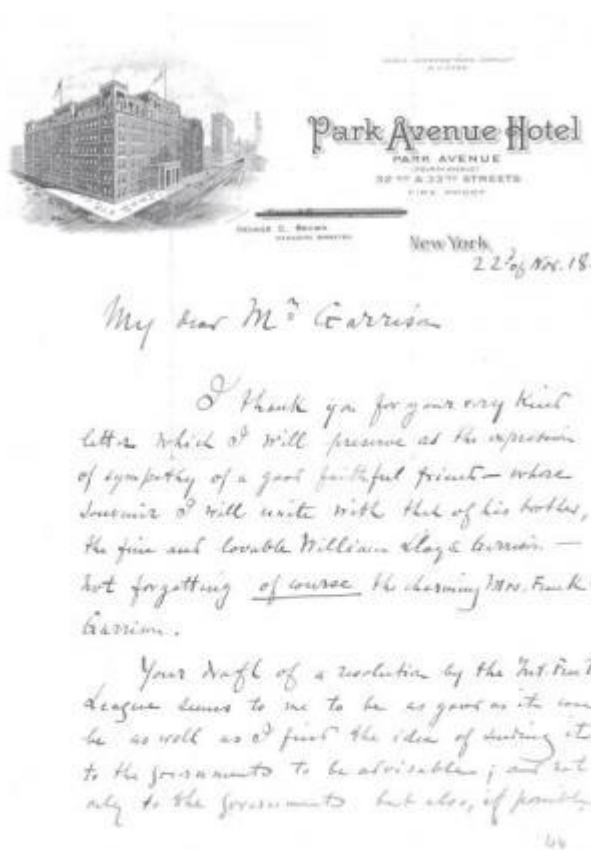 Park Avenue Hotel
PARK AVENUE
(FOURTH AVENUE)
32ND & 33RD STREETS
FIRE PROOF
GEORGE C. BROWN
New York,
22d of Nov. 18
My dear Mr Garrison
I thank you for your very kind
letter which I will preserve as the expression
of sympathy of a good faithful friend — whose
souvenir I will unite with that of his brother,
the fine and lovable William Lloyd Garrison —
not forgetting of course the charming Mrs. Frank
Garrison.
Your draft of a resolution by the Int.
League seems to me to be as good as it can
be as well as I find the idea of sending it
to the governments to be advisable; and not
only to the governments but also, if possible